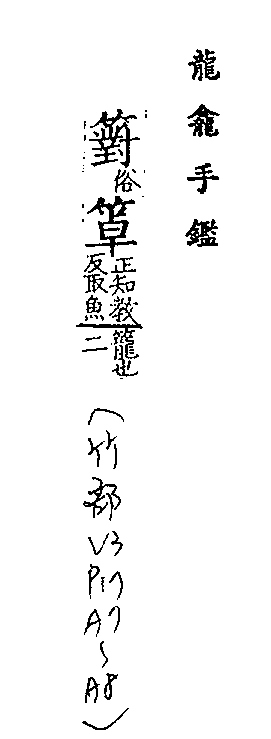 龍龕手鑑
俗 𥮎 正知教反取魚籠也二
(竹部 V3 P17 A7~A8)